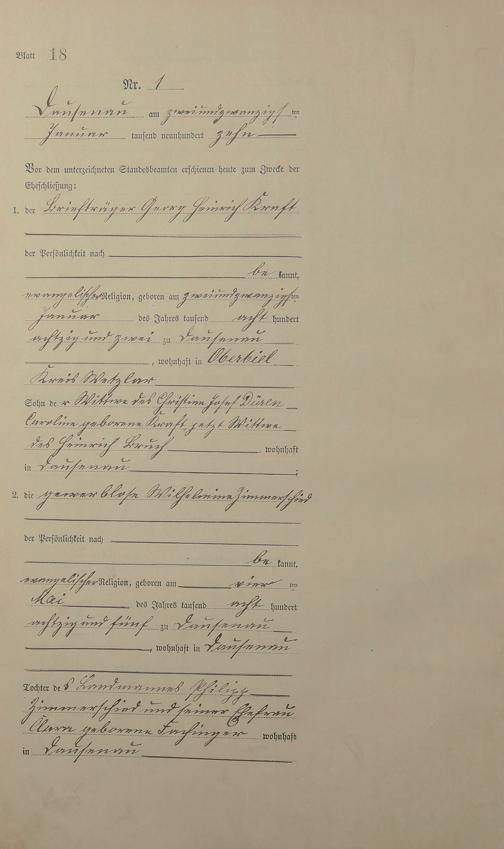 Blatt 18
Nr. 1
Dausenau am zweiundzwanzigsten
Januar tausend neunhundert zehn
Vor dem unterzeichneten Standesbeamten erschienen heute zum Zwecke der
Eheschließung:
1. der Briefträger Georg Heinrich Kraft
der Persönlichkeit nach
be kannt,
evangelischer Religion, geboren am zweiundzwanzigsten
Januar des Jahres tausend acht hundert
achtzig und zwei zu Dausenau
, wohnhaft in Oberbiel
Kreis Wetzlar
Sohn de r Wittwe des Christian Josef
Caroline geborene Kraft, jetzt Wittwe
des Heinrich Bruch wohnhaft
in Dausenau ;
2. die gewerblose Wilhelmine Zimmerschied
der Persönlichkeit nach
be kannt,
evangelischer Religion, geboren am vier ten
Mai des Jahres tausend acht hundert
achtzig und fünf zu Dausenau
, wohnhaft in Dausenau
Tochter de s Landmannes Philipp
Zimmerschied und seiner Ehefrau
Clara geborene Fachinger wohnhaft
in Dausenau